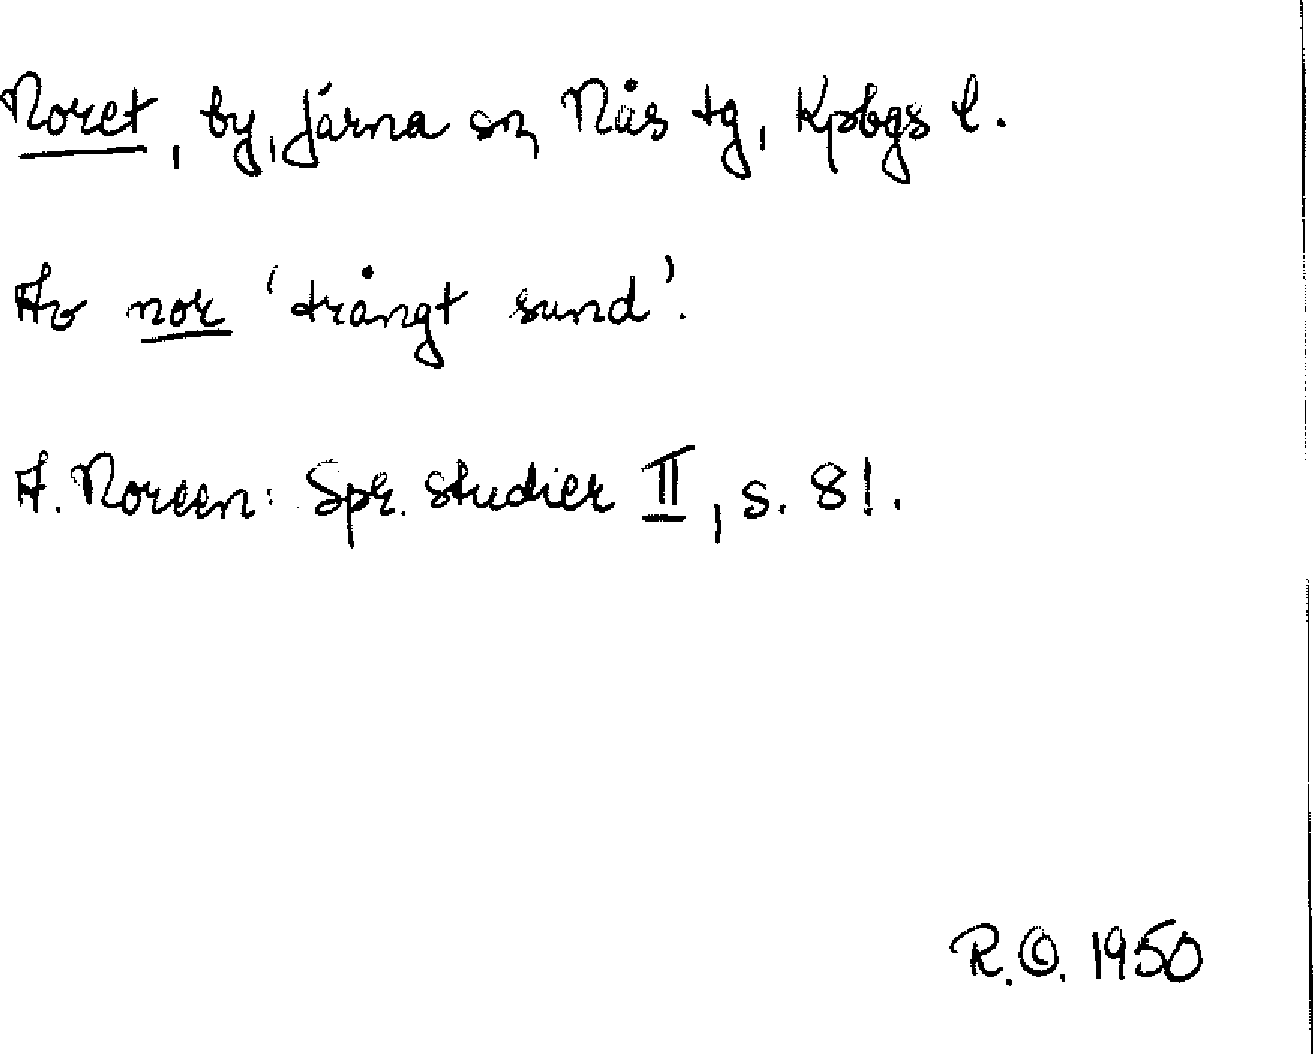 Noret, by, Järna sn, Nås tg, Kpbgs l.
Av nor 'trångt sund'.
A. Noreen: Spr. studier II, s. 81.
R.O. 1950